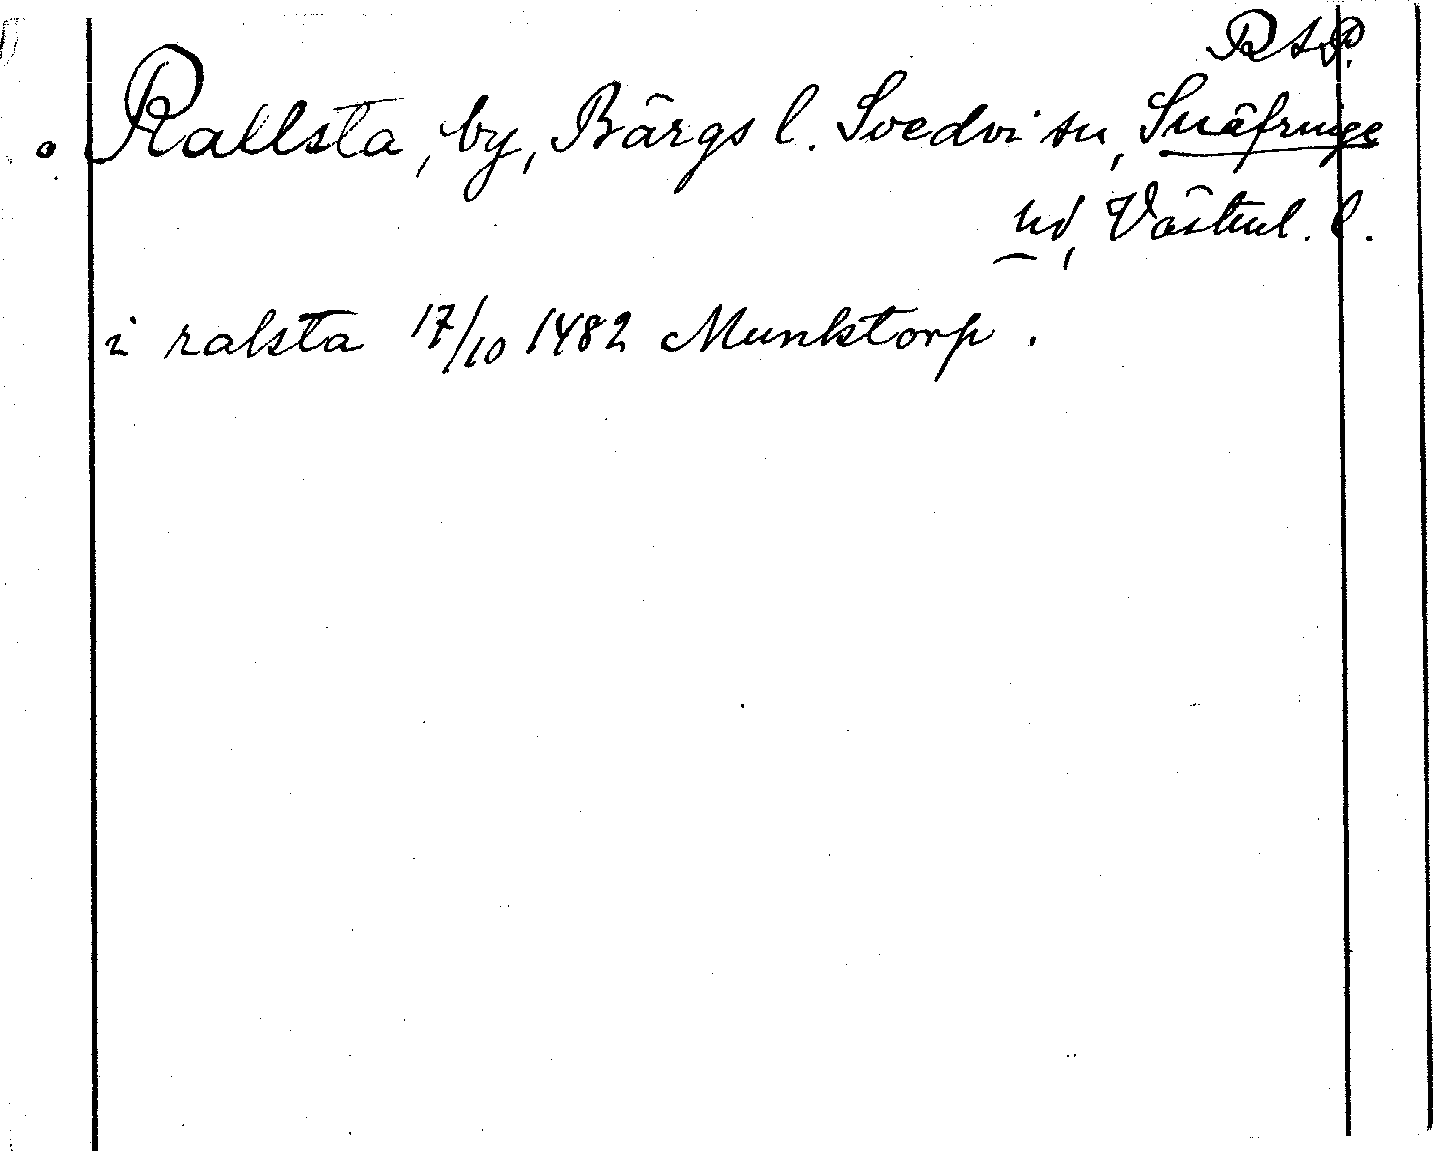 RAP.
Rallsta, by, Bärgs l. Svedvi sn, Snäfringe
hd, Västml. l.
i ralsta 17/10 1482 Munktorp.